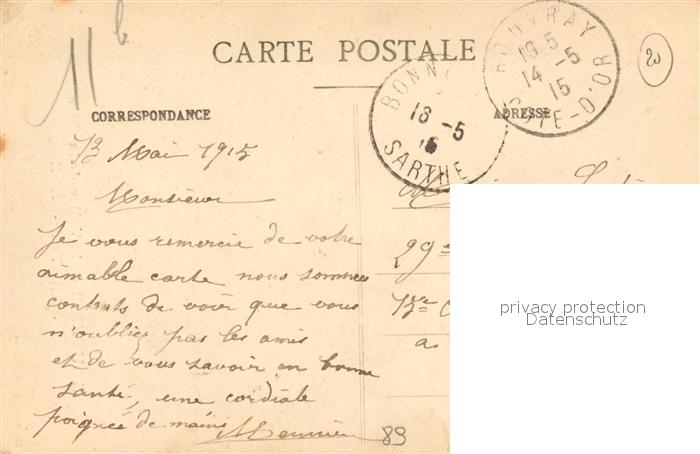 11 b
CARTE POSTALE
20
CORRESPONDANCE
ADRESSE
ROUVRAY
18 5
14 -5
15
COTE-D'OR
BONN
16 -5
15
SARTHE
13 Mai 1915
Monsieur
Je vous remercie de votre
aimable carte nous sommes
contents de voir que vous
n'oubliez pas les amis
et de vous savoir en bonne
santé, une cordiale
poignée de mains
29
15e C
a
89
privacy protection
Datenschutz